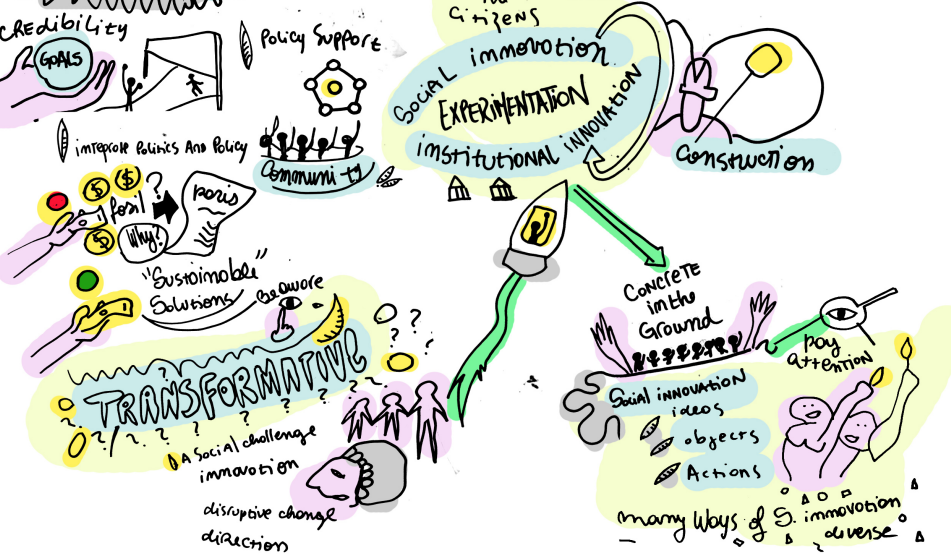 CREdibility
GOALS
Policy Support
integrate Politics And Policy
Community
$
$
$
fosil
?
Why?
paris
"Sustainable"
Solutions
Be aware
TRANSFORMATIVE
A Social challenge
innovation
disruptive change
direction
Citizens
Social innovation
EXPERIMENTATION
institutional INNOVATION
Construction
CONCRETE
in the
Ground
pay
attention
Social innovation
ideas
objects
Actions
many Ways of S. innovation
diverse